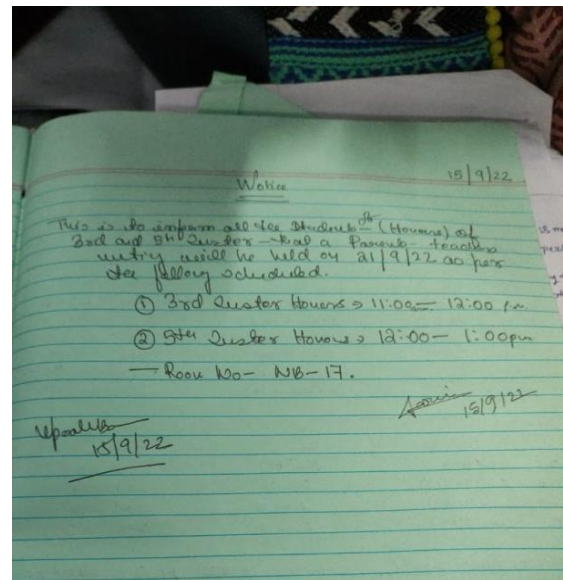 15/9/22
Notice
This is to inform all the Students of (Honours) of
3rd and 5th Semester that a Parents-teachers
meeting will be held on 21/9/22 as per
the following scheduled.
① 3rd Semester Honours → 11:00am – 12:00 pm.
② 5th Semester Honours → 12:00 – 1:00pm
— Room No – NB – 17.
15/9/22
15/9/22